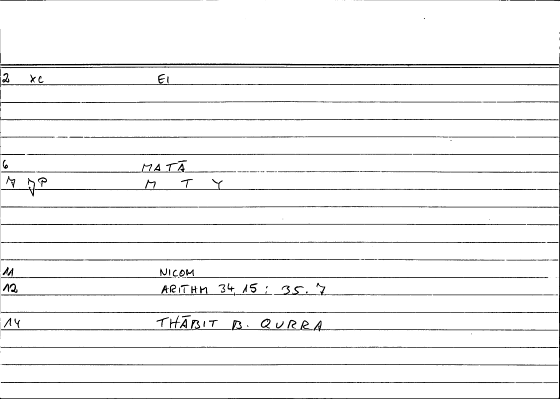 2 XC EI
6 MATĀ
7 JP M T Y
11 NICOM
12 ARITHM 34,15 ; 35.7
14 THĀBIT B. QURRA